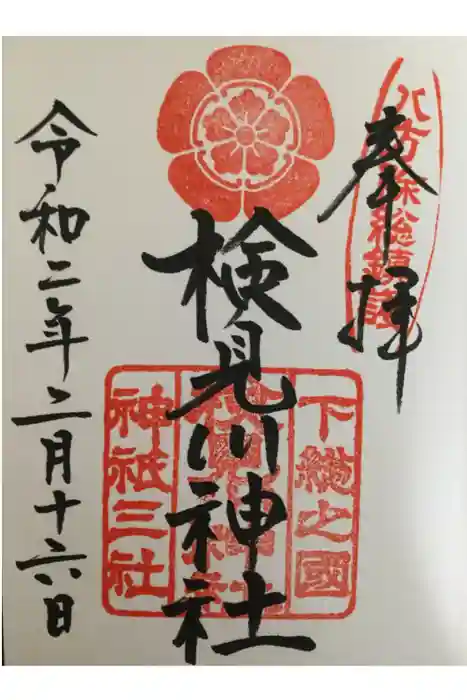 八方除総鎮護
奉拝
検見川神社
下総之國
神祇三社
令和二年二月十六日